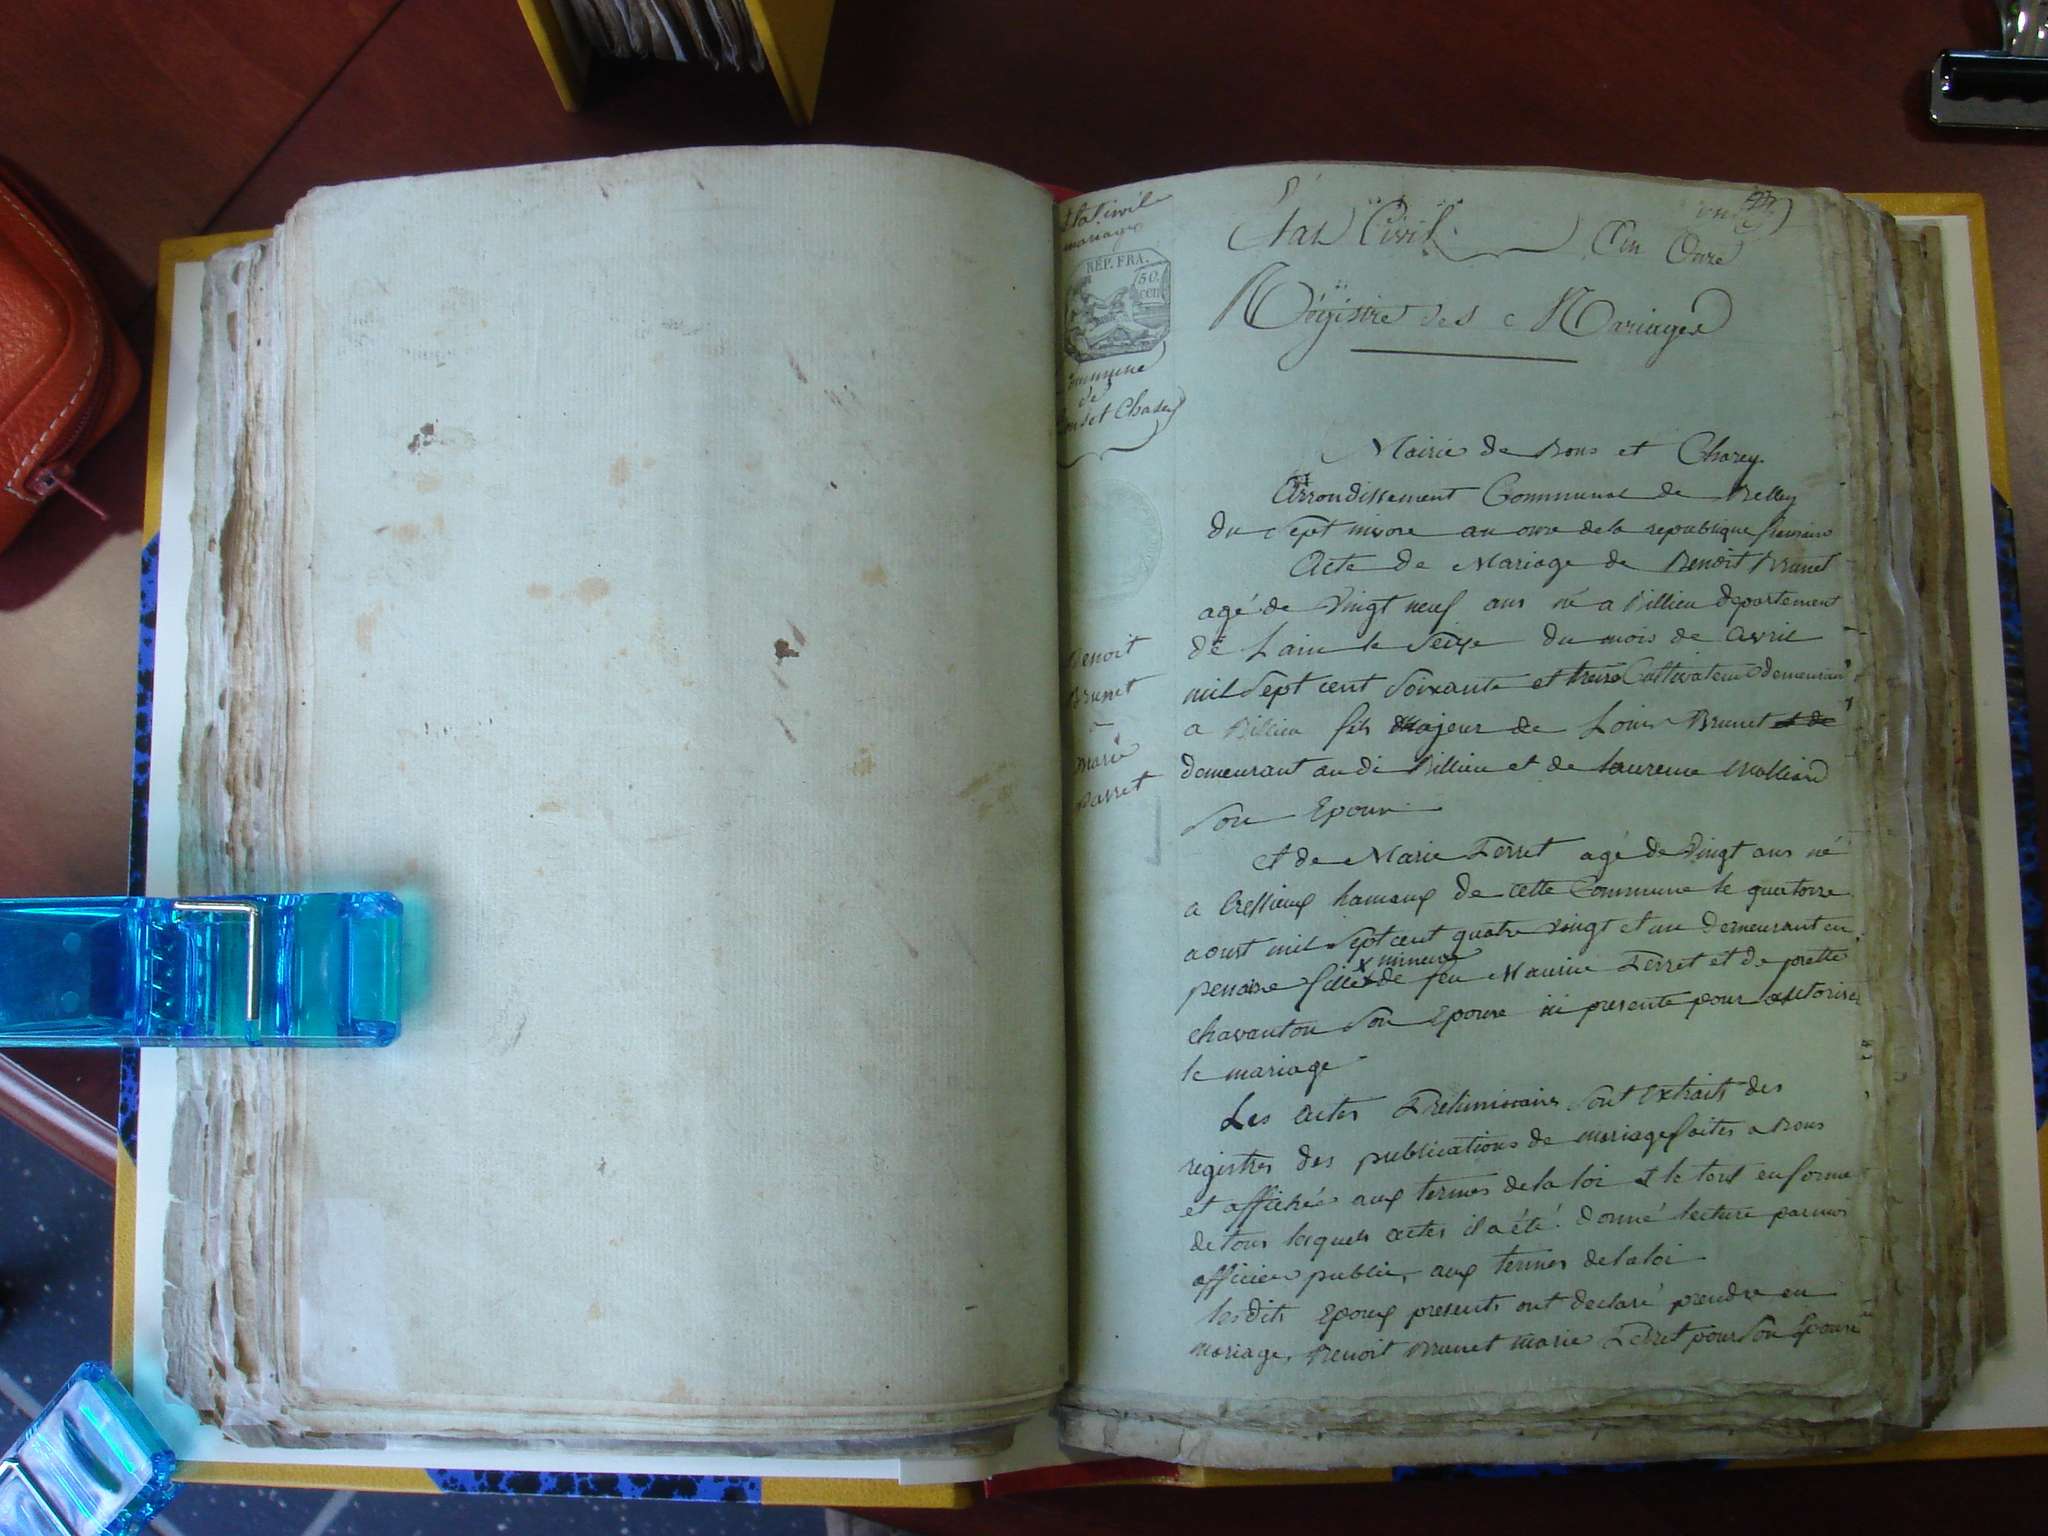 Etat civil
mariages
REP. FRA.
50
cent
Commune
de
Bons et Chazey
Etat Civil An Onze
Régistre des Mariages
Mairie de Bons et Chazey
Arrondissement Communal de Belley
du Sept nivose an onze de la republique francaise
Acte de Mariage de Benoit Brunet
agé de Vingt neuf ans né a Billieu departement
de Lain le Seize du mois de avril
mil Sept cent Soixante et treize Cultivateur demeurant
a Billieu fils Majeur de Louis Brunet et de
demeurant au di Billieu et de laurence
Son Epouse
Benoit
Brunet
a
Marie
Parret
et de Marie Perret agé de Vingt ans né
a Cressieux hameaux de cette Commune le quatorze
aoust mil Sept cent quatre vingt et un demeurant en
mineure
fille x de feu Maurice Perret et de prette
chavanton Son Epouse ici presente pour autoriser
le mariage
Les actes Preliminaires Sont Extraits des
registres des publications de mariage faites a Bons
et affichés aux termes de la loi et le tout en forme
de tous lesquels actes il a été donné lecture par moi
officier public, aux termes de la loi
les dits Epoux presents ont declaré prendre en
mariage, Benoit Brunet Marie Perret pour Son Epouse